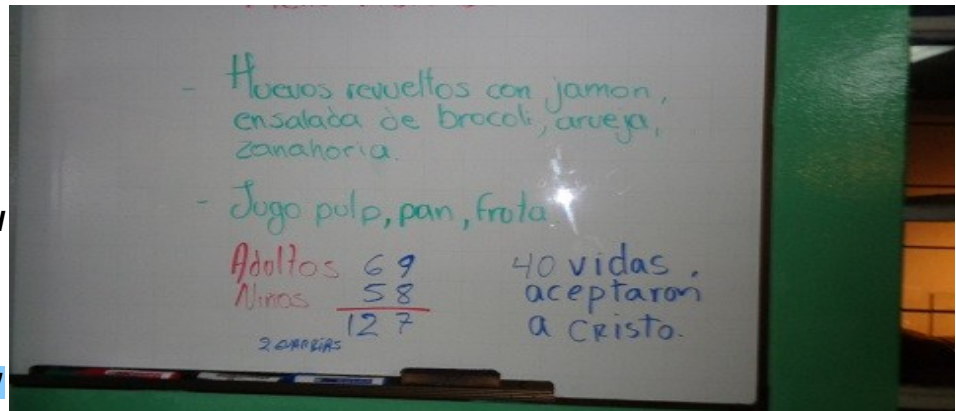 - Huevos revueltos con jamon,
ensalada de brocoli, arveja,
zanahoria.
- Jugo pulp, pan, fruta.
Adultos 69
Ninos 58
127
40 vidas
aceptaron
a CRISTO.